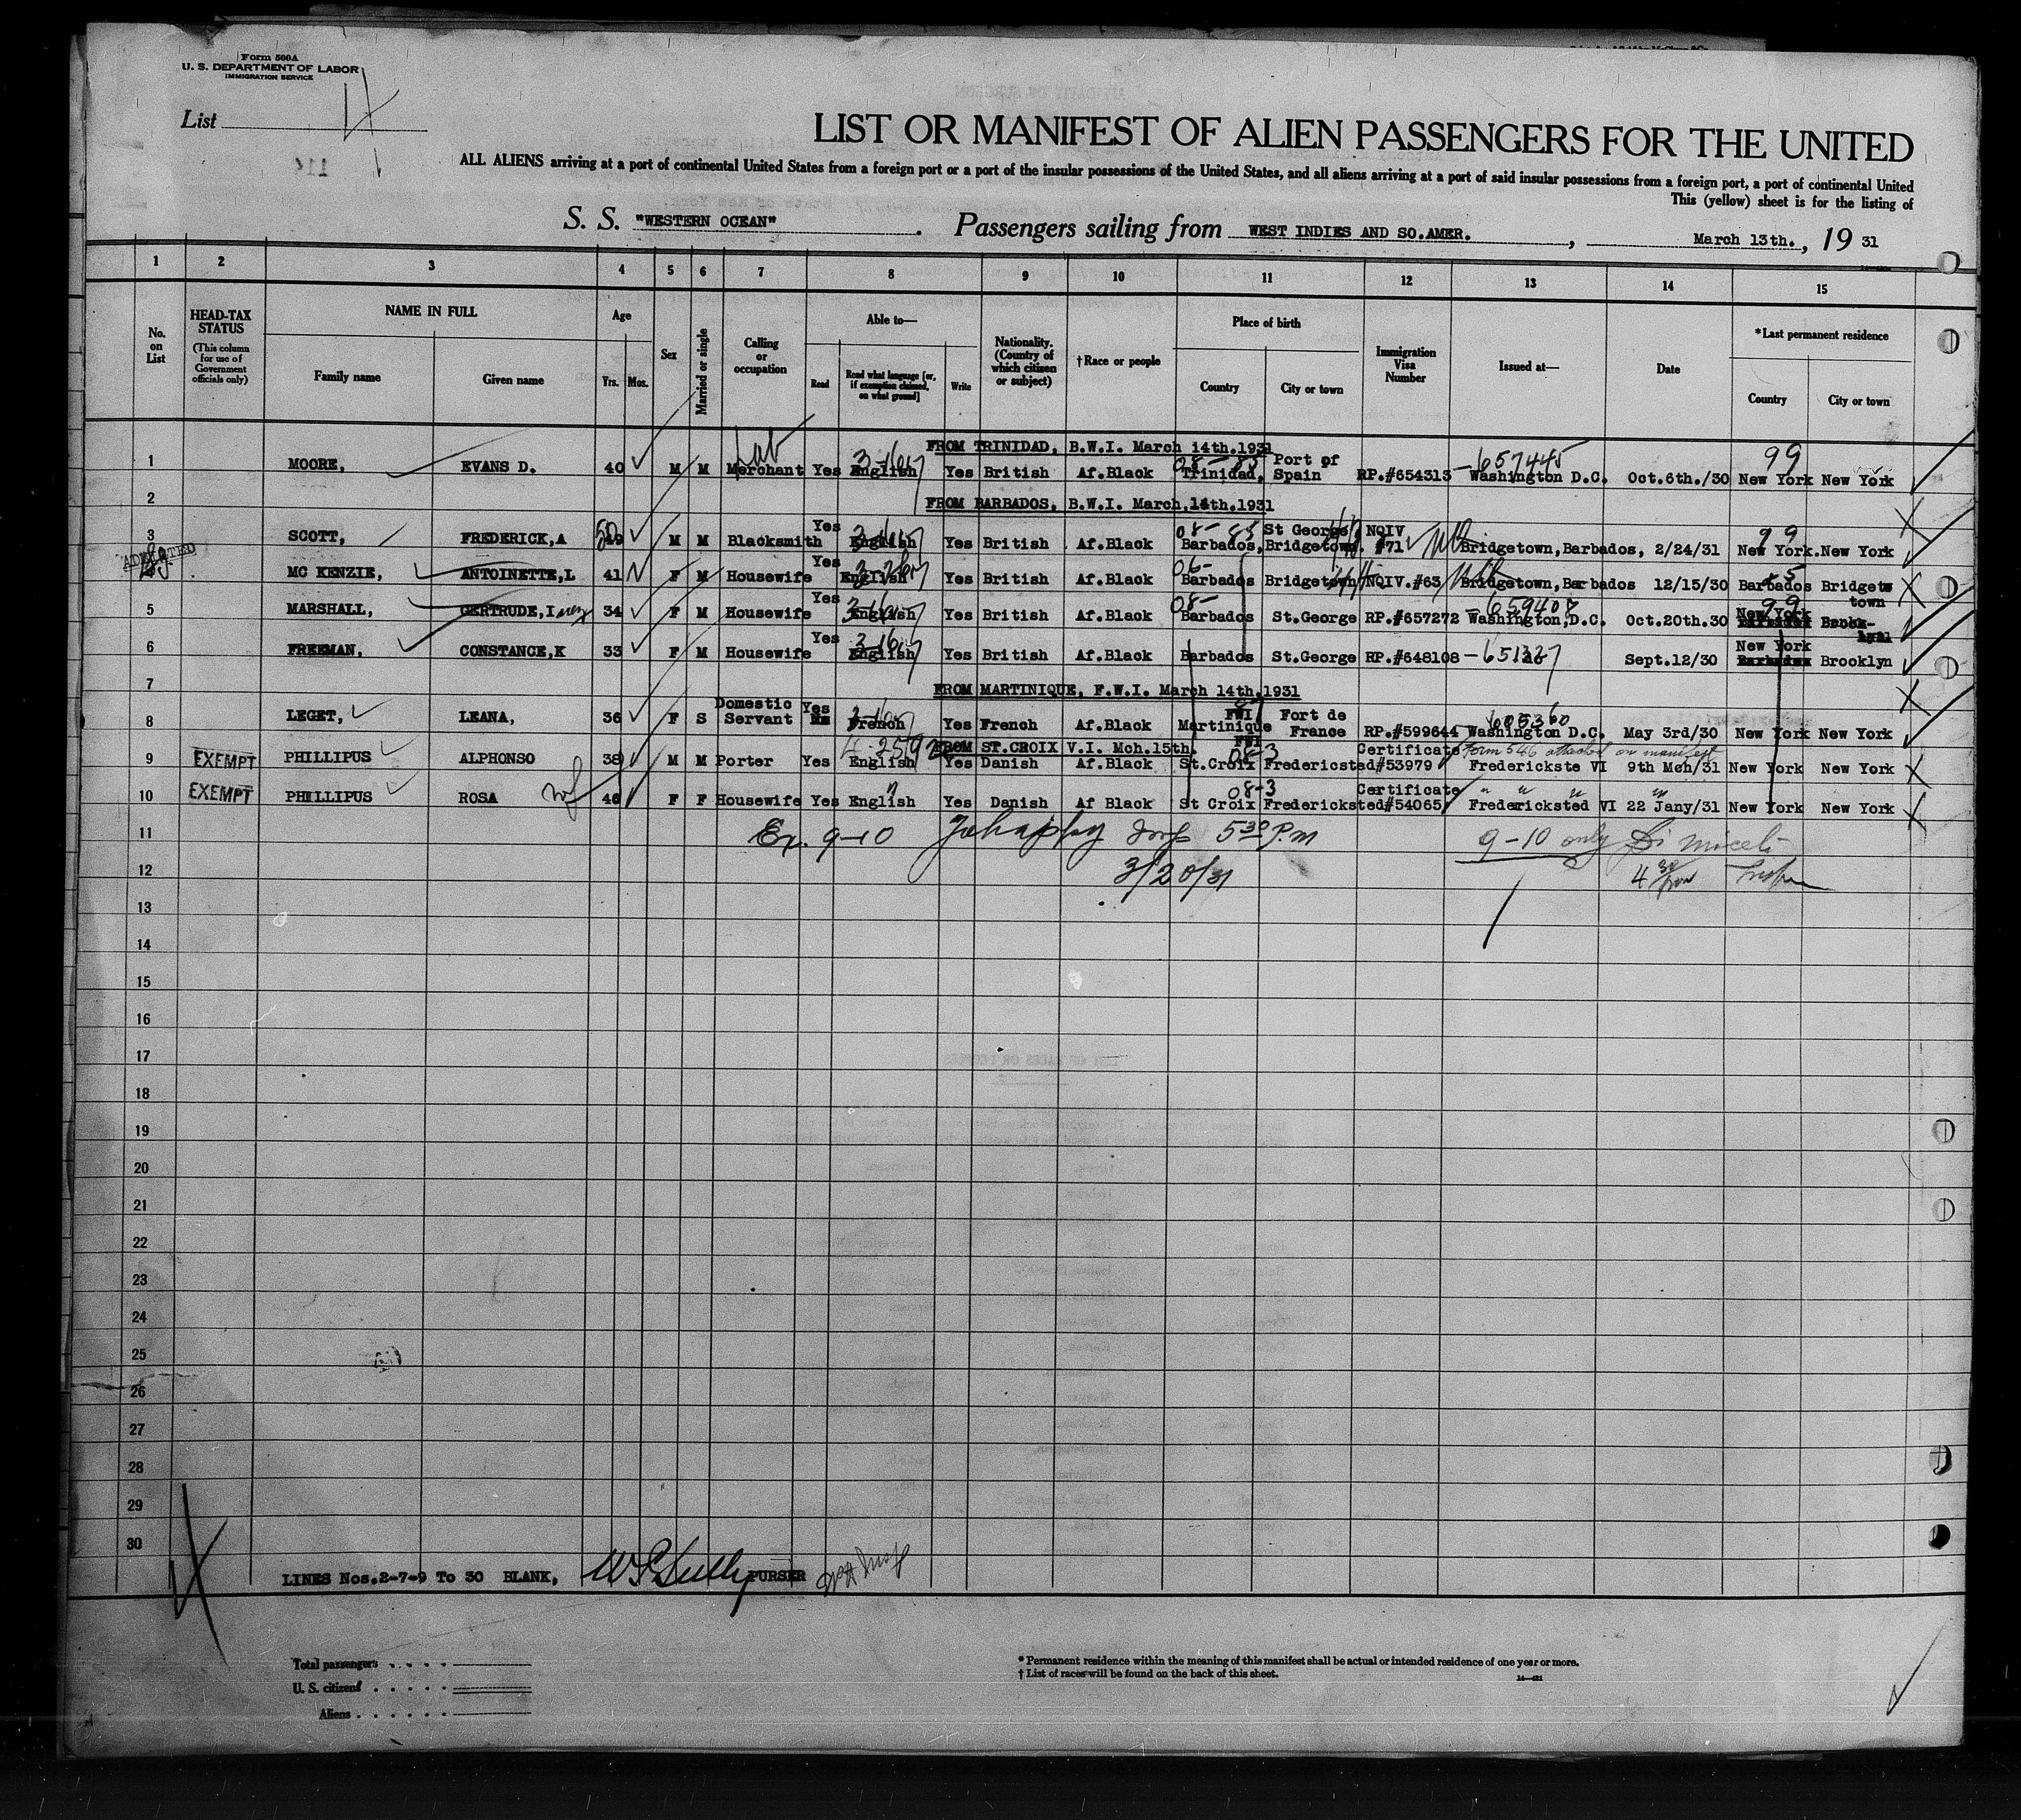 Form 500A
U. S. DEPARTMENT OF LABOR
IMMIGRATION SERVICE
List
LIST OR MANIFEST OF ALIEN PASSENGERS FOR THE UNITED
ALL ALIENS arriving at a port of continental United States from a foreign port or a port of the insular possessions of the United States, and all aliens arriving at a port of said insular possessions from a foreign port, a port of continental United
This (yellow) sheet is for the listing of
S. S. "WESTERN OCEAN". Passengers sailing from WEST INDIES AND SO.AMER., March 13th., 19 31
1 2 3 4 5 6 7 8 9 10 11 12 13 14 15
No. on List
HEAD-TAX STATUS (This column for use of Government officials only)
NAME IN FULL Family name Given name
Age Yrs. Mos.
Sex
Married or single
Calling or occupation
Able to— Read Read what language [or, if exemption claimed, on what ground] Write
Nationality. (Country of which citizen or subject)
†Race or people
Place of birth Country City or town
Immigration Visa Number
Issued at—
Date
*Last permanent residence Country City or town
FROM TRINIDAD, B.W.I. March 14th.1931
1 MOORE, EVANS D. 40 M M Merchant Yes English Yes British Af.Black Trinidad, Port of Spain RP.#654313 —657445 Washington D.C. Oct.6th./30 99 New York New York
2 FROM BARBADOS, B.W.I. March,14th.1931
3 SCOTT, FREDERICK,A 50 M M Blacksmith Yes English Yes British Af.Black Barbados, St George Bridgetown. NQIV #71 Bridgetown,Barbados, 2/24/31 99 New York.New York
ADMITTED MC KENZIE, ANTOINETTE,L 41 F M Housewife Yes English Yes British Af.Black Barbados Bridgetown NQIV.#63 Bridgetown,Barbados 12/15/30 Barbados Bridgetown
5 MARSHALL, GERTRUDE,Inez 34 F M Housewife Yes English Yes British Af.Black Barbados St.George RP.#657272 —659408 Washington,D.C. Oct.20th.30 99 New York Brooklyn
6 FREEMAN, CONSTANCE,K 33 F M Housewife Yes English Yes British Af.Black Barbados St.George RP.#648108 —651327 Sept.12/30 New York Brooklyn
7 FROM MARTINIQUE, F.W.I. March 14th.1931
8 LEGET, LEANA, 36 F S Domestic Servant Yes French Yes French Af.Black Martinique FWI Fort de France RP.#599644 605360 Washington D.C. May 3rd/30 New York New York
FROM ST.CROIX V.I. Mch.15th.
9 EXEMPT PHILLIPUS ALPHONSO 38 M M Porter Yes English Yes Danish Af.Black St.Croix Fredericsted Certificate #53979 Form 546 attached on manifest Frederickste VI 9th Mch/31 New York New York
10 EXEMPT PHILLIPUS ROSA 46 F F Housewife Yes English Yes Danish Af Black St Croix Fredericksted Certificate #54065 Fredericksted VI 22 Jany/31 New York New York
11 Ex. 9-10 Insp 5 30 P.M 9-10 only
12 3/20/31 4 30
13
14
15
16
17
18
19
20
21
22
23
24
25
26
27
28
29
30
LINES Nos.2-7-9 To 30 BLANK, PURSER
Total passengers
U. S. citizens
Aliens
* Permanent residence within the meaning of this manifest shall be actual or intended residence of one year or more.
† List of races will be found on the back of this sheet.